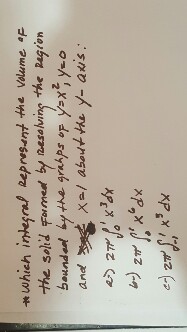 *Which integral represent the volume of
the solid formed by resolving the Region
bounded by the graphs of y=x², y=0
and x=1 about the y-axis:
a-) 2π ∫₀¹ x³ dx
b-) 2π ∫₀¹ x⁶ dx
c-) 2π ∫₋₁¹ x³ dx